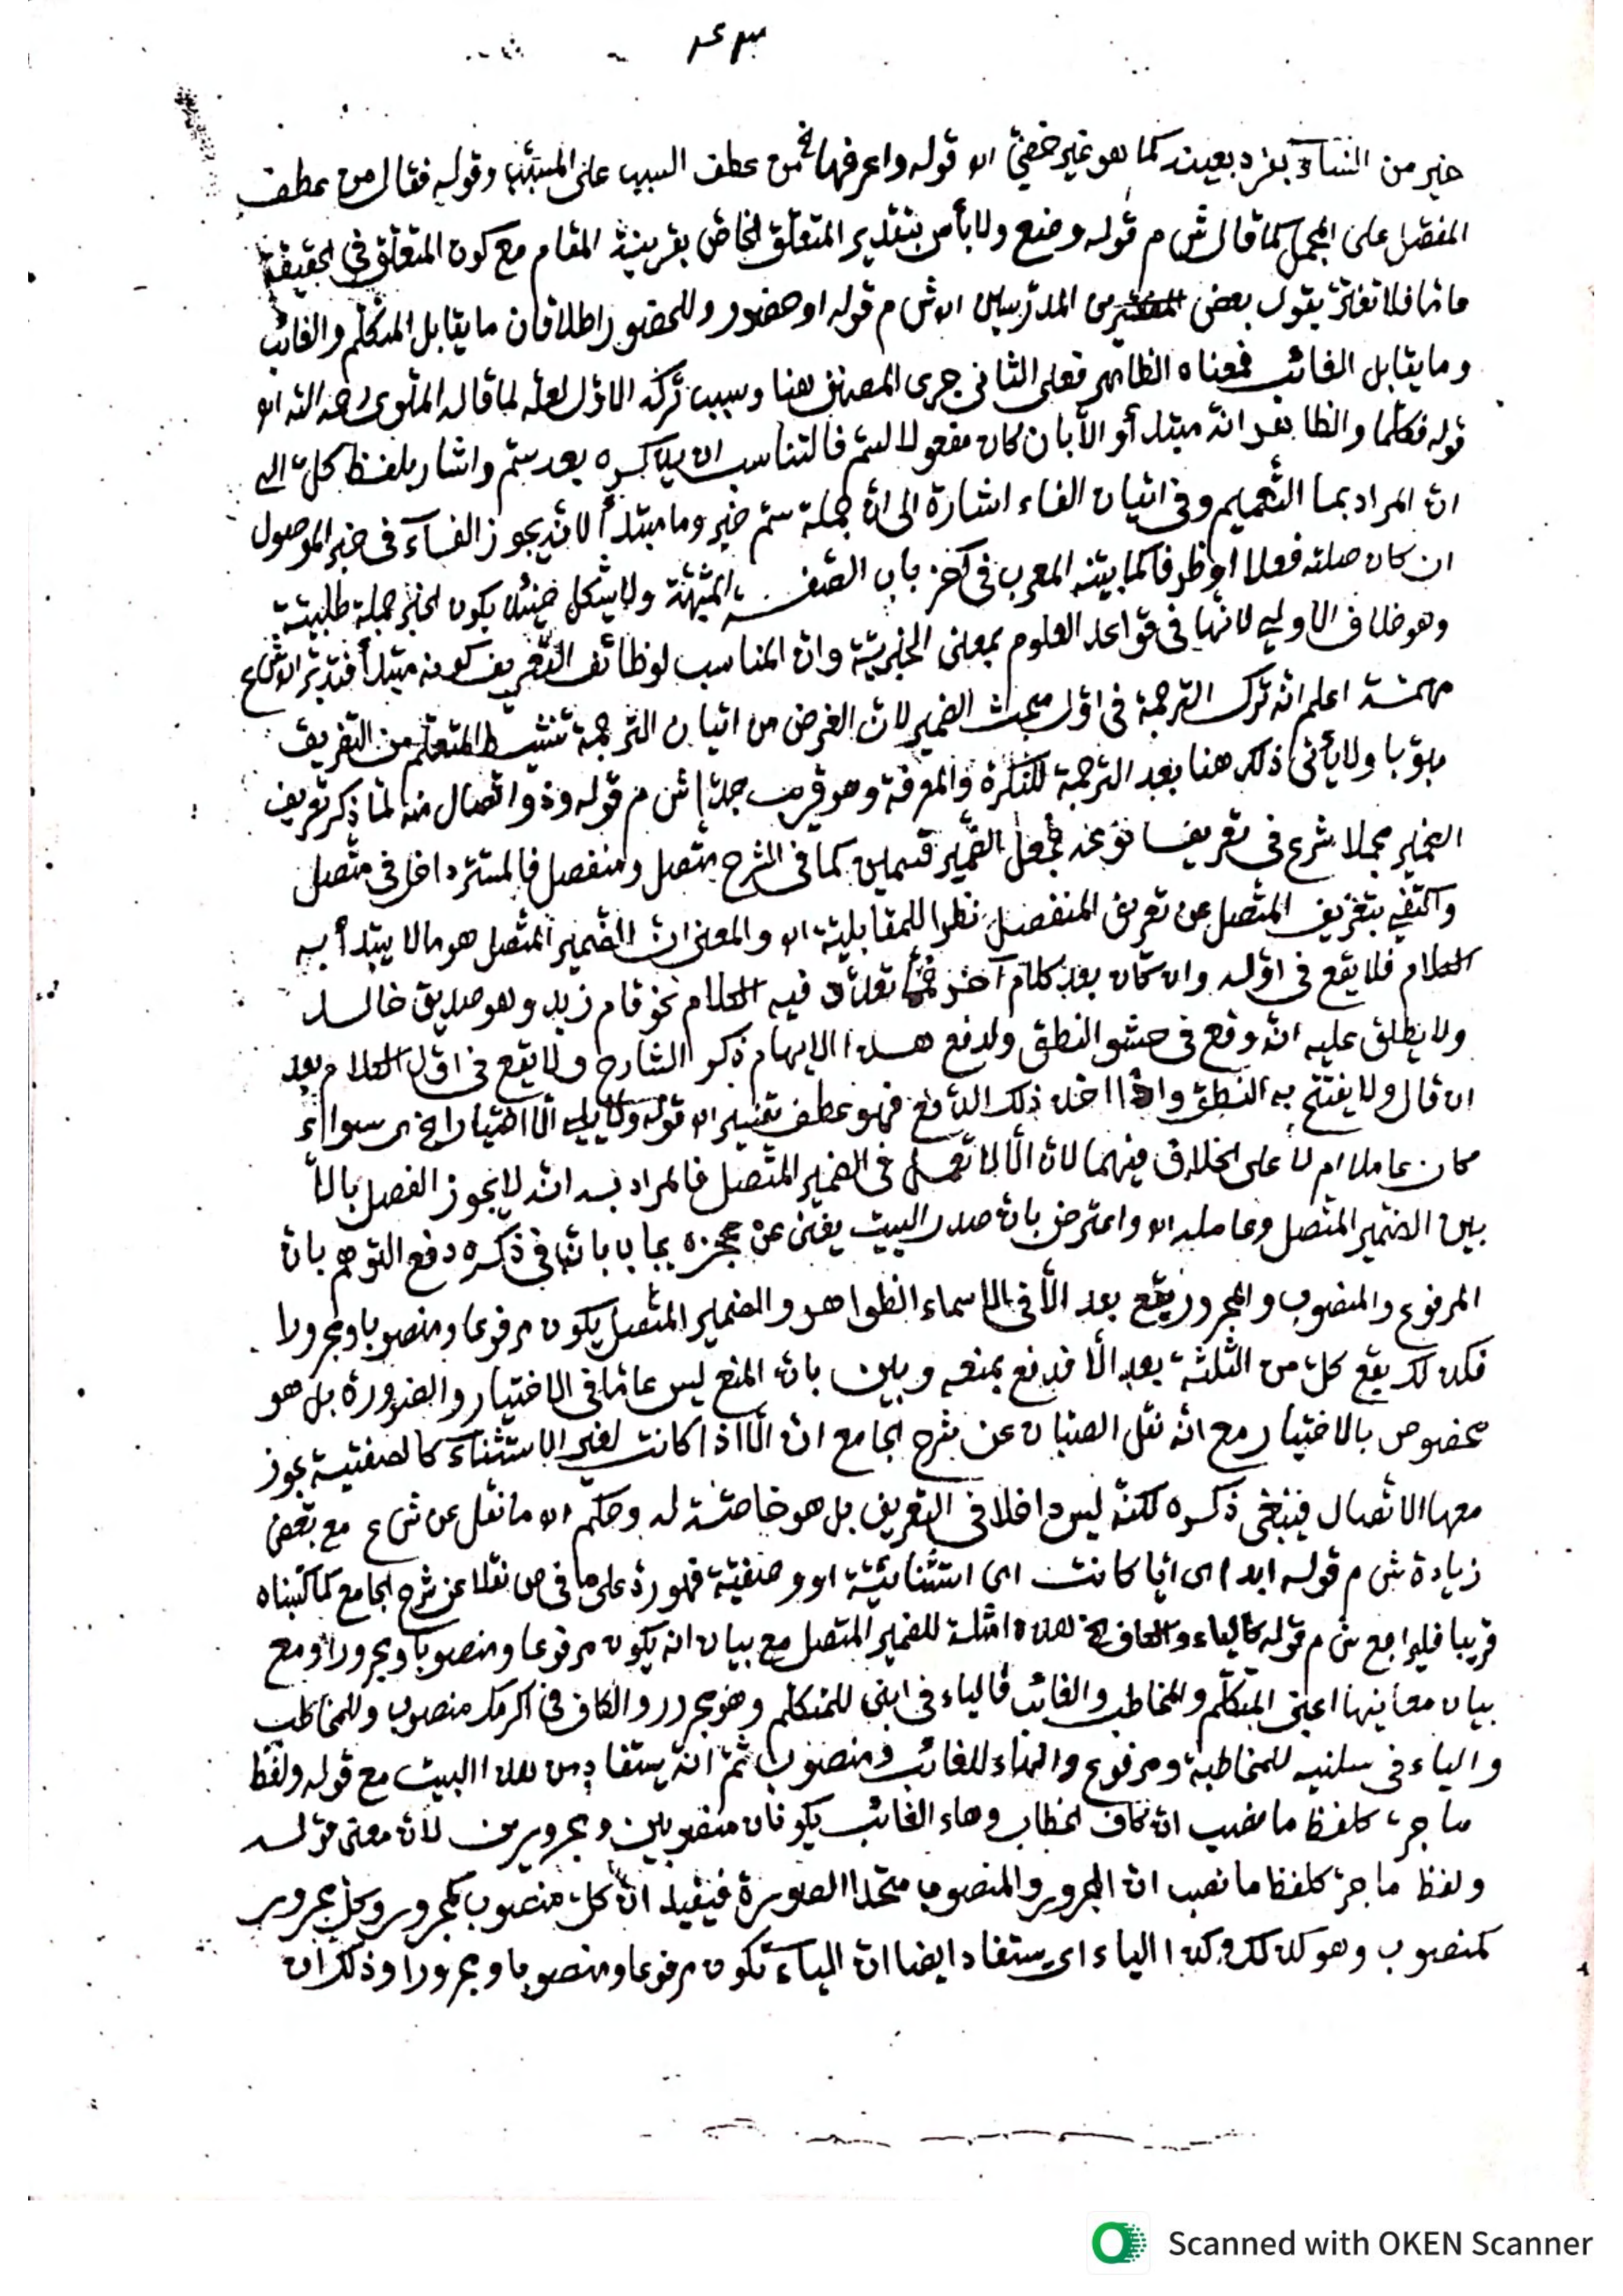 خير من النساء بفرد بعينه كما هو غير خفيّ اه قوله واعرفها الخ من عطف السبب على المسبّب وقوله فقال من عطف
المفصّل على المجمل كما قال ش م قوله وضع ولا بأس بتقدير المتعلّق الخاصّ بقرينة المقام مع كون المتعلّق في الحقيقة
عامّا فلا تغترّ بقول بعض المدرّسين اه ش م قوله او حضور وللحضور اطلاقان ما يقابل المتكلّم والغائب
وما يقابل الغائب فمعناه الظاهر فعلى الثاني جرى المصنف هنا وسبب تركه الاوّل لعلّه لما قاله المنوي رحمه الله اه
قوله فكلّما والظاهر انّه مبتدأ والّا بان كان مفعولا لسمّ فالتناسب ان يذكره بعد سمّ واشار بلفظ كلّ الى
انّ المراد بما التّعميم وفي اتيان الفاء اشارة الى انّ جملة سمّ خبر وما مبتدأ لانّه يجوز الفاء في خبر الموصول
ان كان صلته فعلا او ظرفا كما بيّنه المعرب في آخر باب الصّفة المشبّهة ولا يشكل حينئذ بكون الخبر جملة طلبيّة
وهو خلاف الاولى لانّها في قواعد العلوم بمعنى الخبريّة وانّ المناسب لوظائف التّعريف كونه مبتدأ فتدبّر اه ش ع
مهمّة اعلم انّه ترك الترجمة في اوّل مبحث الضمير لانّ الغرض من اتيان الترجمة تنشيط المتعلّم من التفريق
مبوّبا ولا يأتي ذلك هنا بعد الترجمة للنكرة والمعرفة وهو قريب جدّا ش م قوله وذو اتّصال منه لمّا ذكر تعريف
الضمير مجملا شرع في تعريف نوعه فجعل الضّمير قسمين كما في الشرح متّصل ومنفصل فالمستتر داخل في متّصل
واكتفي بتعريف المتّصل عن تعريف المنفصل نظرا للمقابلة اه والمعنى انّ الضمير المتّصل هو ما لا يبتدأ به
الكلام فلا يقع في اوّله وان كان بعد كلام آخر تعدّد فيه الكلام نحو قام زيد وهو صديق خالد
ولا يطلق عليه انّه وقع في حشو النطق ولدفع هذا الايهام ذكر الشارح ولا يقع في اوّل الكلام بعد
ان قال ولا يفتتح به النطق واذا اخذ ذلك الدّفع فهو عطف تفسير اه قوله ولا يلي الّا اختيارا الخ اي سواء
كان عاملا ام لا على الخلاف فيهما لانّ الّا لا تعمل في الضمير المتّصل فالمراد به انّه لا يجوز الفصل بالّا
بين الضمير المتّصل وعامله اه واعترض بانّ صدر البيت يغني عن عجزه يجاب بانّ في ذكره دفع التوهّم بانّ
المرفوع والمنصوب والمجرور يقع بعد الّا في الاسماء الظواهر والضمير المتّصل يكون مرفوعا ومنصوبا ومجرورا
فكذلك يقع كلّ من الثلثة بعد الّا فدفع بمنعه وبين بانّ المنع ليس عامّا في الاختيار والضرورة بل هو
مخصوص بالاختيار مع انّه نقل الصبّان عن شرح الجامع انّ الّا اذا كانت لغير الاستثناء كالصفتية يجوز
معها الاتّصال فينبغي ذكره لكنّه ليس داخلا في التعريف بل هو خاصّة له وحكم اه ما نقل عن ش ع مع بعض
زيادة ش م قوله ابدا اي ايّا كانت اي استثنائيّة او وصفيّة فهو ردّ على ما في ص نقلا عن شرح الجامع كما كتبناه
قريبا فليراجع ش م قوله كالياء والكاف الخ هذه امثلة للضمير المتصل مع بيان انه يكون مرفوعا ومنصوبا ومجرورا ومع
بيان معانيها اعني المتكلّم والمخاطب والغائب فالياء في ابني للمتكلّم وهو مجرور والكاف في اكرمك منصوب وللمخاطب
والياء في سلنيه للمخاطبة ومرفوع والهاء للغائب ومنصوب ثمّ انّه يستفاد من هذا البيت مع قوله ولفظ
ما جرّ كلفظ ما نصب انّ كاف الخطاب وهاء الغائب يكونان منصوبين ومجرورين لانّ معنى قوله
ولفظ ما جرّ كلفظ ما نصب انّ المجرور والمنصوب متّحدا الصورة فيفيد انّ كلّ منصوب كمجرور وكلّ مجرور
كمنصوب وهو كذلك وكذا الياء اي يستفاد ايضا انّ الياء تكون مرفوعا ومنصوبا ومجرورا وذلك انّ
Scanned with OKEN Scanner